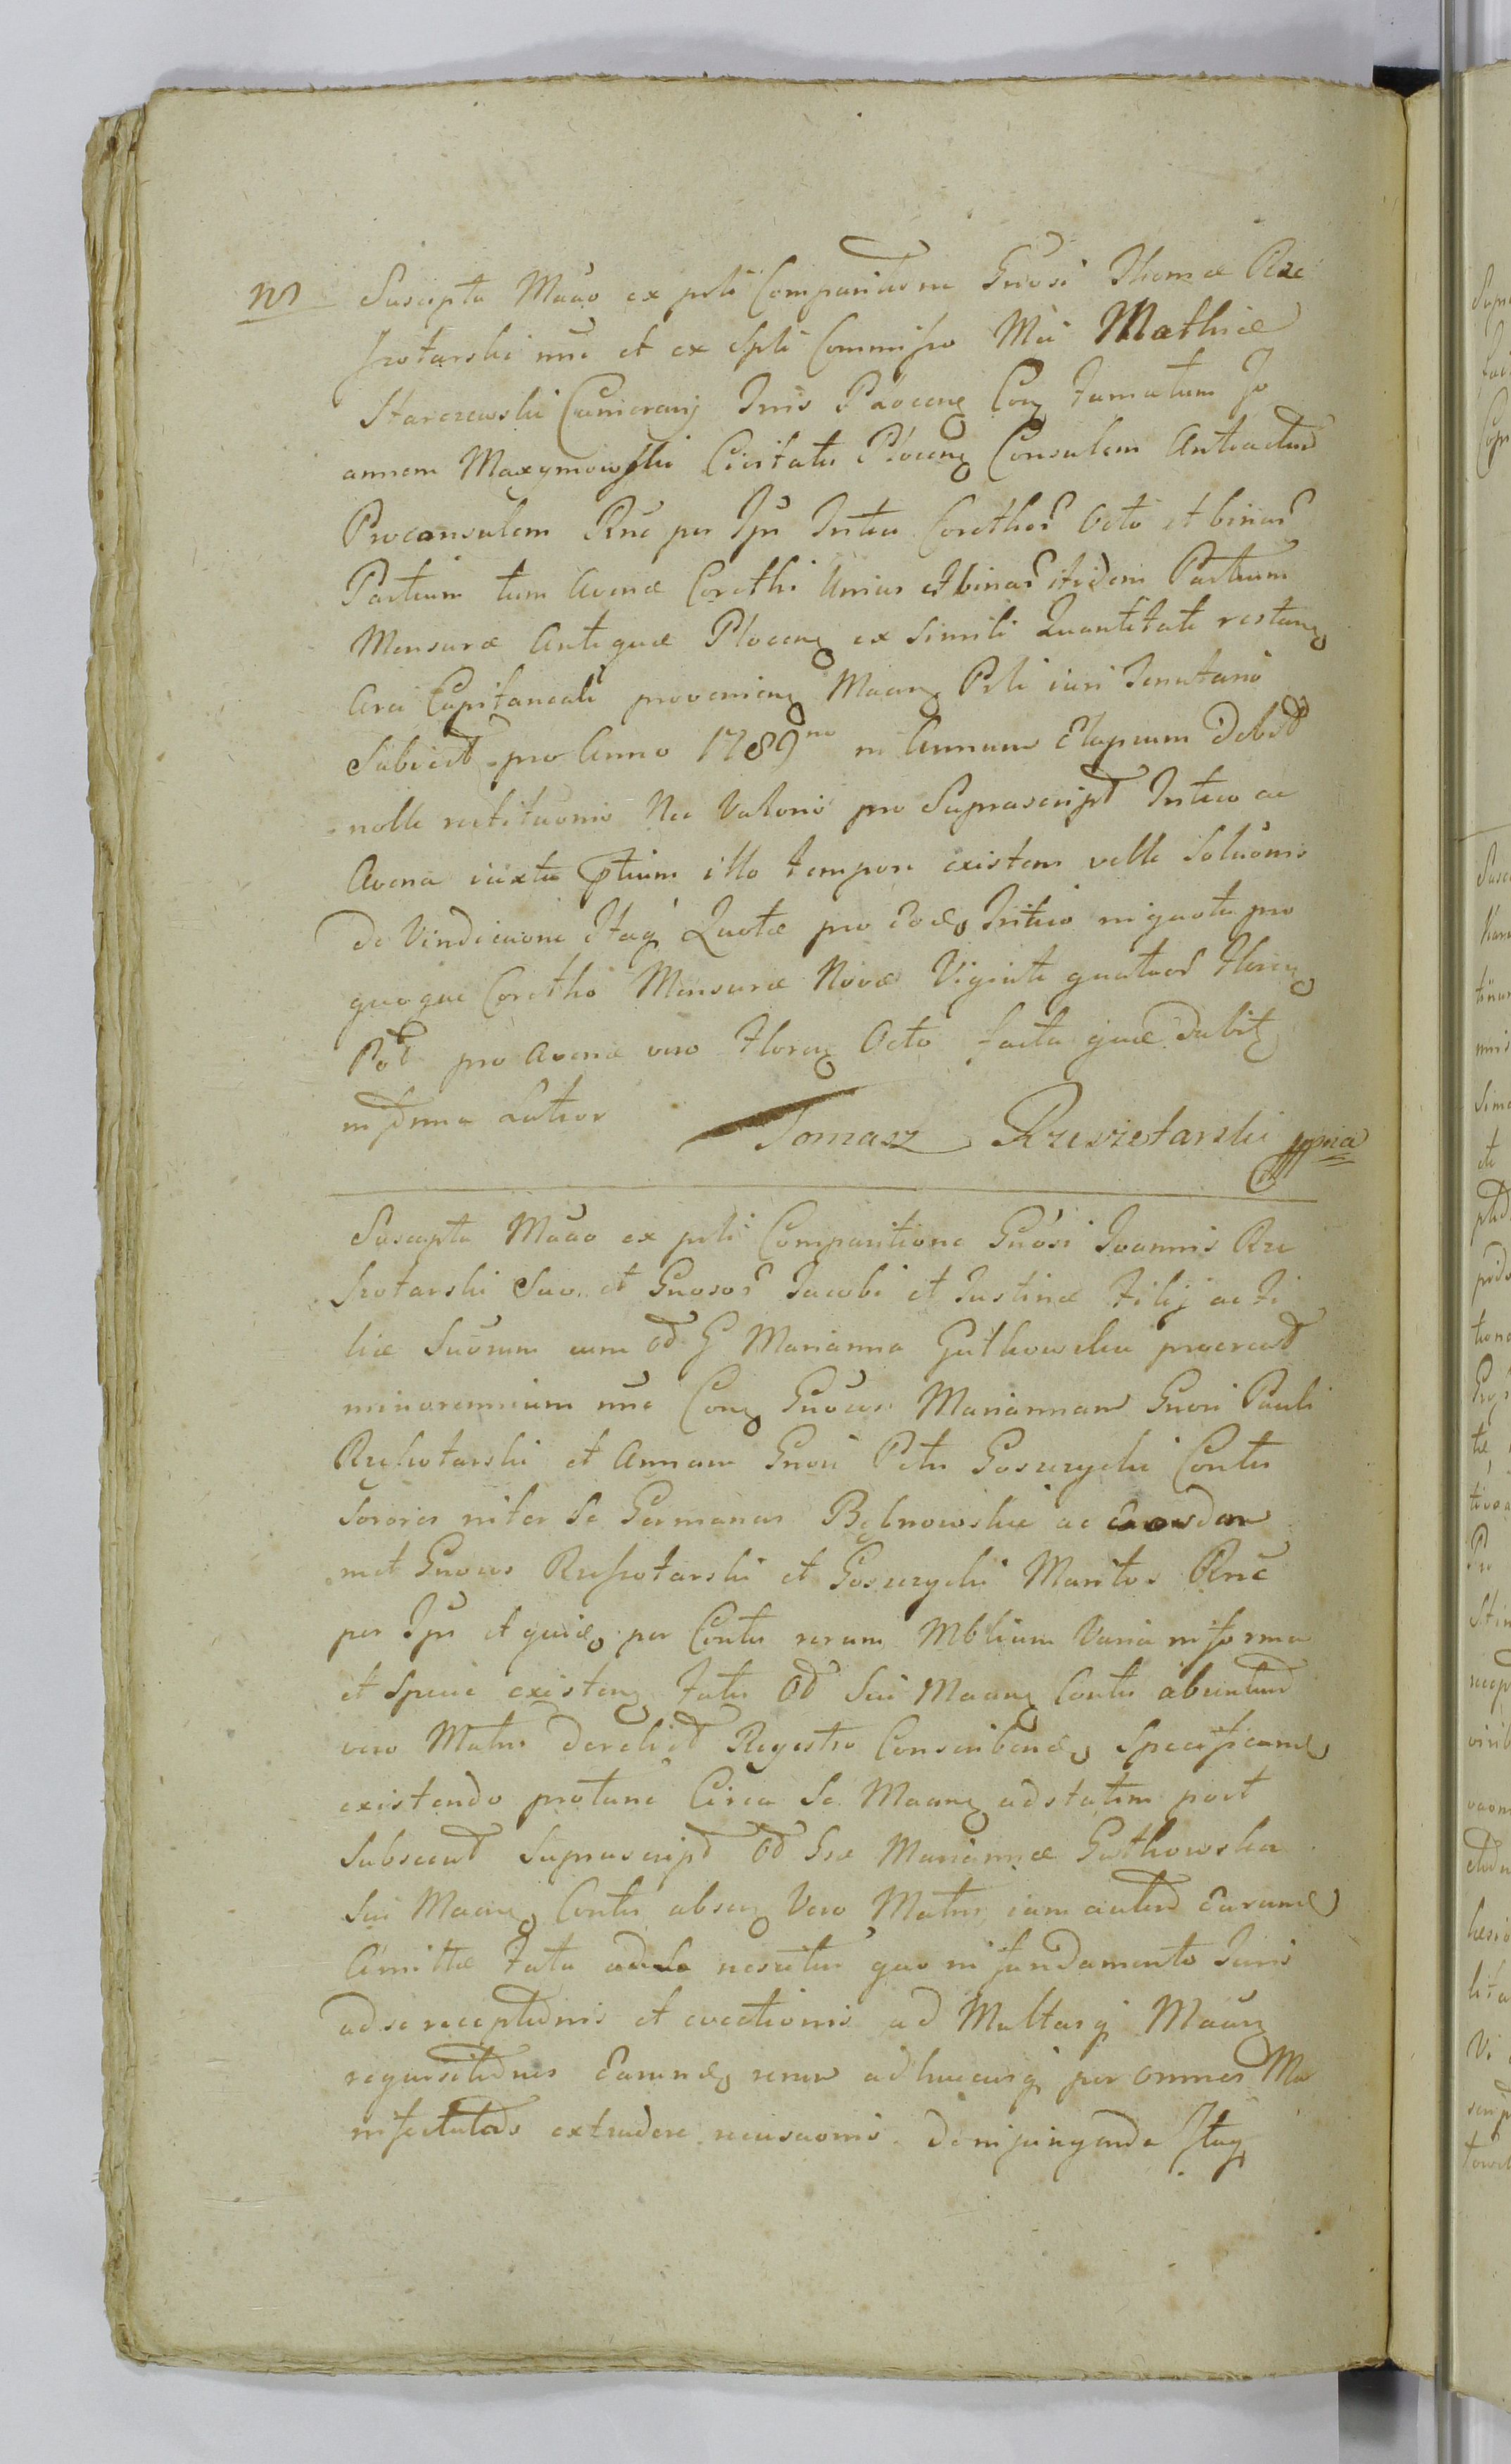 Ns Suscepta Mãão ex pñti Comparitione Gñosi Thomæ Rze
szotarski nñe et ex Spli Commisso Mci Mathiæ
Starczewski Camerarij Tñris Plocens Con Famatum Jo
annem Maxymowski Civitatis Plocens Consulem Anteactum
Proconsulem Rñe per Ipñ Tritici Corethor Octo et binar
Partium tum Avenæ Corethi Unius et binar itidem Partium
Mensuræ Antiquæ Plocens ex Simili Quantitate restan
Arci Capitaneali provenien Maan Pñti iuri Tenutario
Subiect pro Anno 1789no in Annum Elapsum Debit
nolle restituõnis Nec Valoris pro Suprascript Tritico ac
Avena iuxta Ptium illo tempore existem velle Soluõnis
De Vindicaõne Itaq Quotæ pro Eod Tritico in quota pro
quoque Coretho Mensuræ Novæ Viginti quatuor Floren
Pol pro Avena vero Floren Octo facta quæ dabit
in fõrma Latior Tomasz Rzeszetarski mpria
Suscepta Mããо ex pñti Comparitione Gñosi Joannis Rze
szotarski Suo et Gnosor Jacobi et Justinæ Filij ac Fi
liæ Suorum cum Od G Marianna Gutkowska procreat
minorennium nñe Con Gñosas Mariannam Gñosi Pauli
Rzeszotarski et Annam Gnosi Petri Goszczycki Contes
Sorores inter Se Germanas Bębnowskie ac Eosdem
met Gnosos Rzeszotarski et Goszczycki Maritos Rñe
per Ipñ et quid per Contes rerum Mblium Varia in forma
et Specie existen Fatis Od Sui Maan Contis absentium
vero Matris Derelict Regestro Conscribend Specificand
existendo protunc Circa Se Maan ad statim post
Subsecut Suprascript Od Gsæ Mariannæ Gutkowska
Sui Maan Contis absen Vero Matris iam autem Earund
Amittæ Fata ad Se nescitur quo in fundamento Juris
ad se receptionis et evectionis ad Multasq Mããn
requisitiones Earund rerum adhucusq per omnes Ma
nifestatos extradere recusaõnis De injungenda Itaq